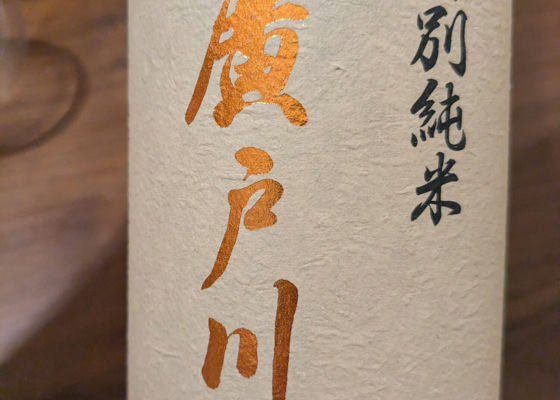 別純米
廣戸川